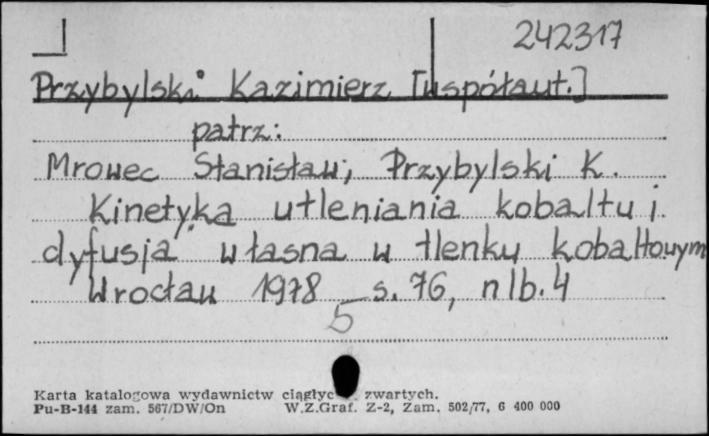 242317
Przybylski Kazimierz [współaut.]
patrz:
Mrowec Stanisław; Przybylski K.
Kinetyka utleniania kobaltu i
dyfusja własna w tlenku kobaltowym
Wrocław 1978 s. 76, nlb. 4
5
Karta katalogowa wydawnictw ciągłyc zwartych.
Pu-B-144 zam. 567/DW/On W.Z.Graf. Z-2, Zam. 502/77, 6 400 000